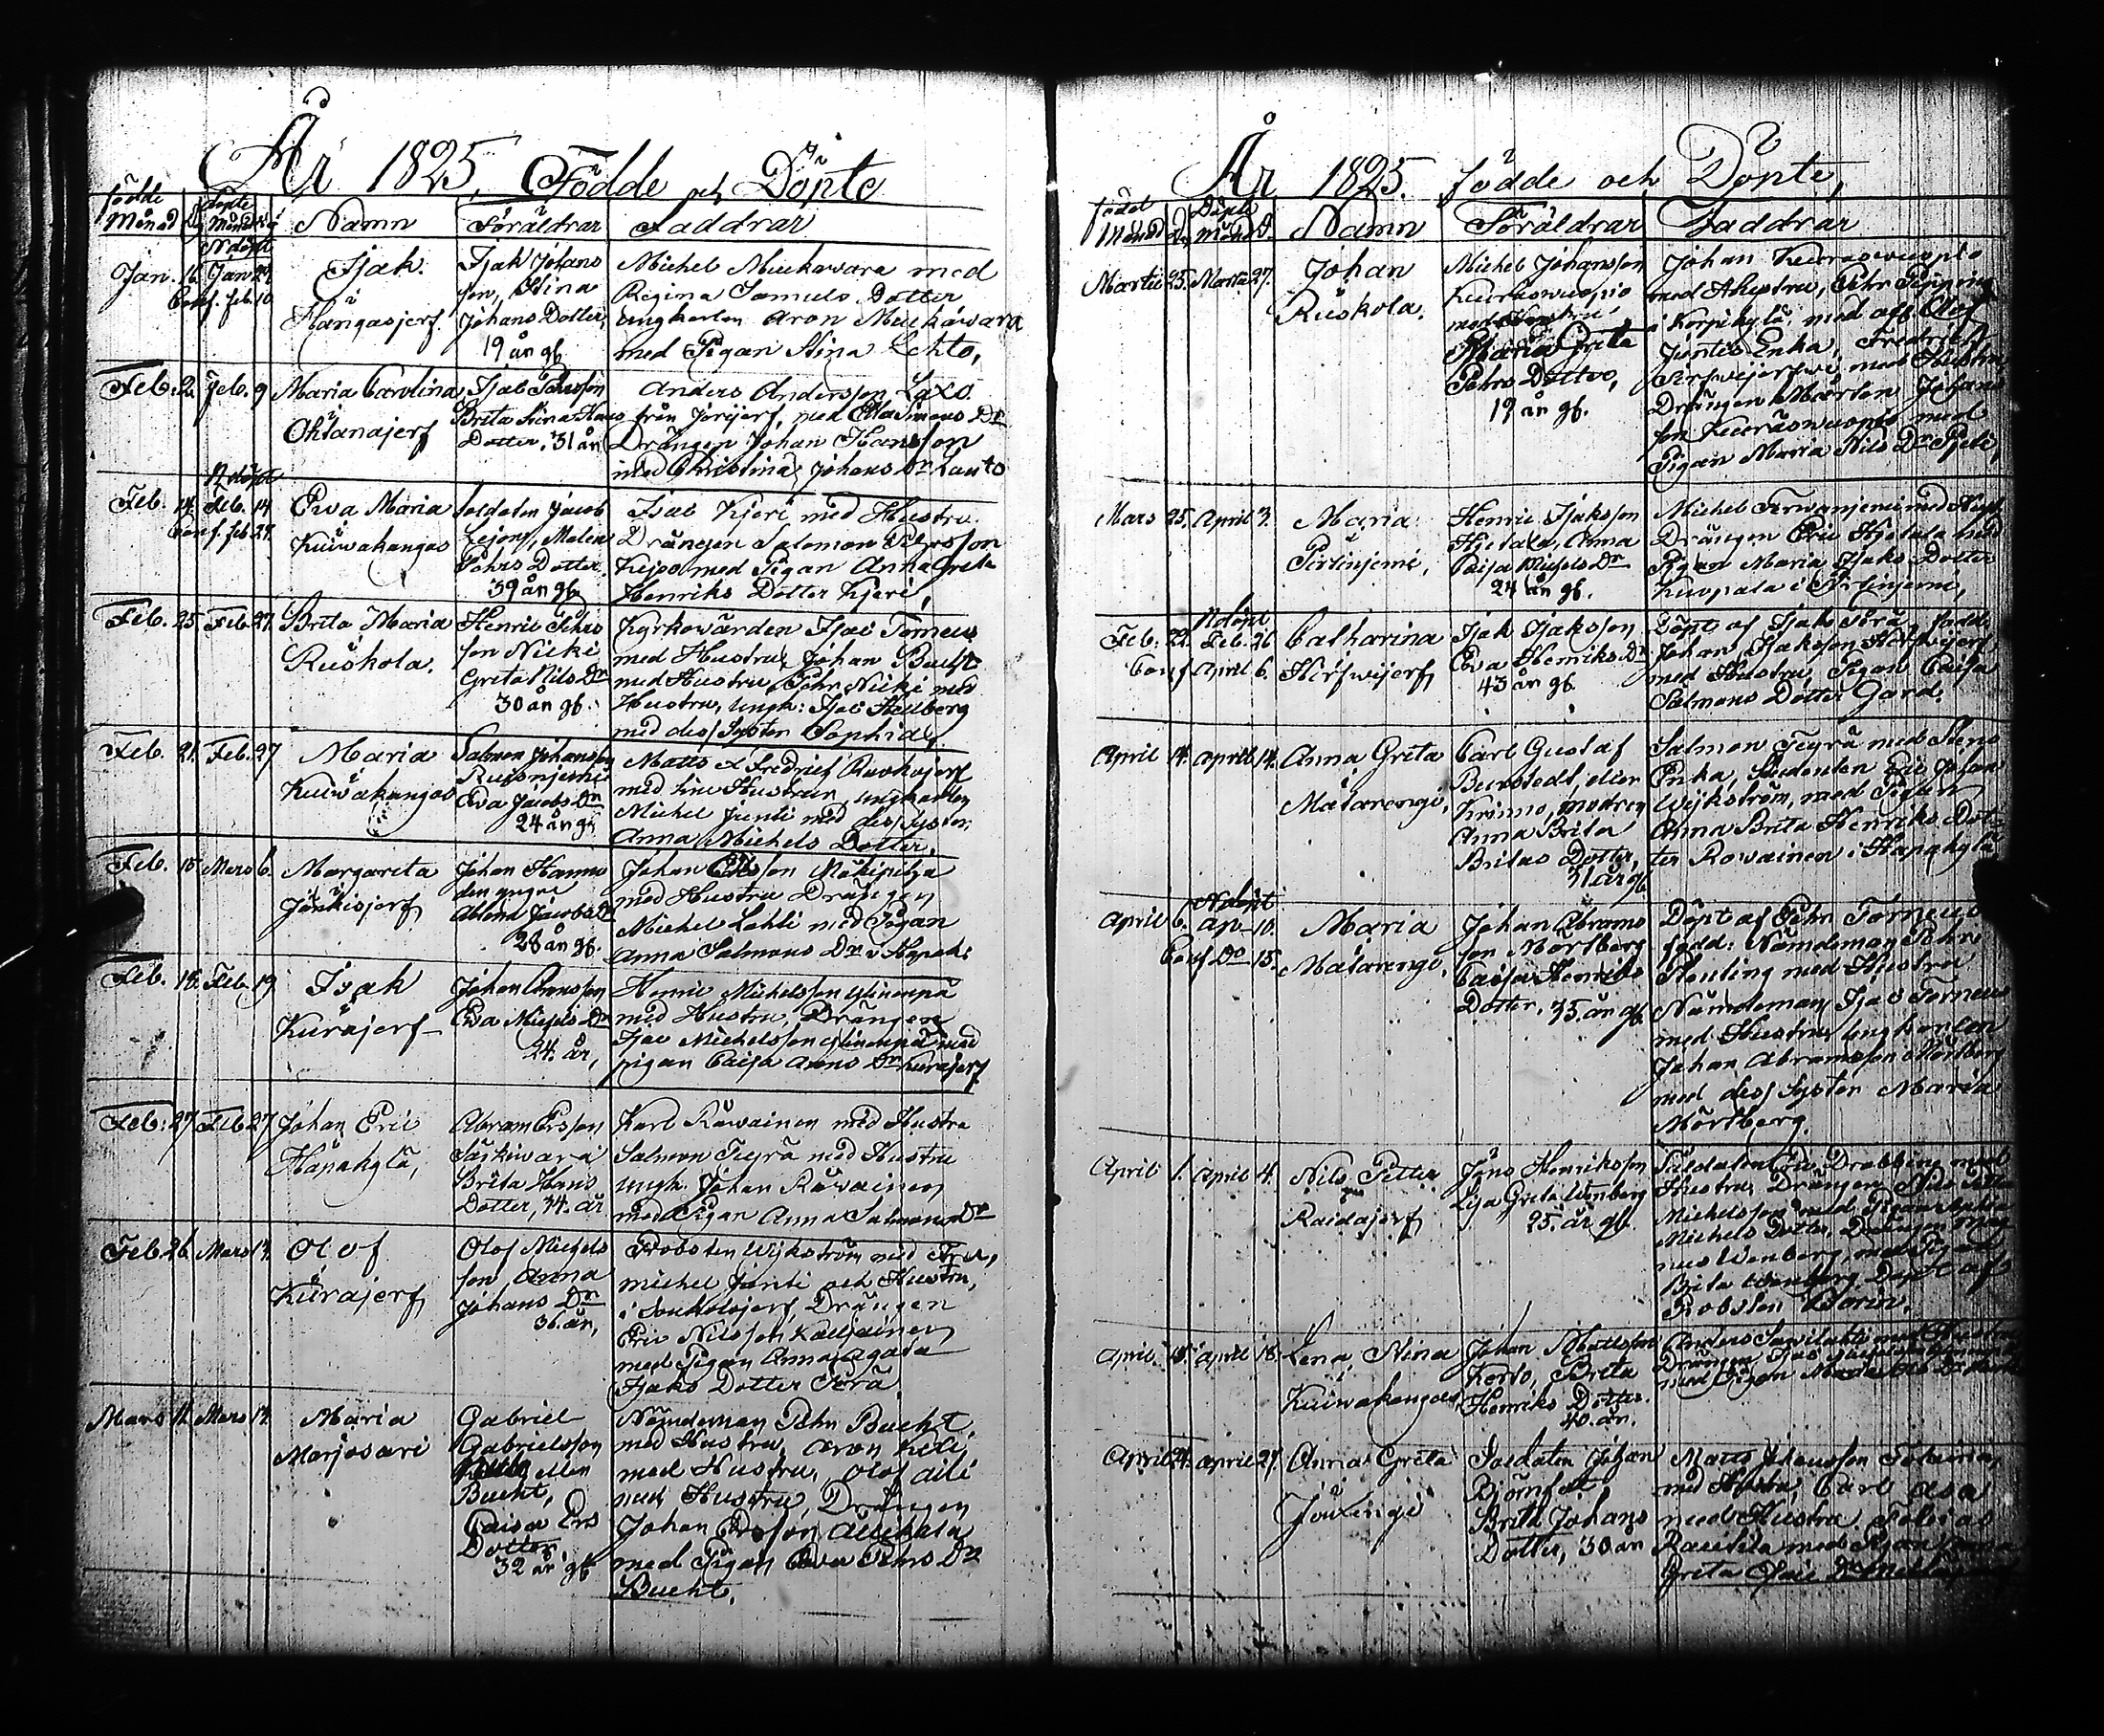 År 1825, Födde och Döpte
födde Månad D. Döpte Månad D. Namn Föräldrar Faddrar
Jan. 16. Ndöpt Jan. Conf. Feb. 10. Isak. Hangasjerf.
Isak Johans
son, Stina
Johans Dotter,
19 år gl.
Michel Muckavara med
Regina Samuels Dotter
ungkarlen Aron Muckavara
med Pigan Stina Lehto,
Feb. 2. Feb. 9 Maria Carolina
Ohtanajerf
Isac Pehrsson
Brita Stina Hans
Dotter, 31 år
Anders Andersson Laxo
från Jerijerf, med
Drängen Johan Hansson
med Christina Johans Dr Lauto
Feb. 14. Ndöpt Feb. 14 Conf. Feb. 27. Ewa Maria
Kuiwakangas
Soldaten Jacob
Lejon, Malin
Pehrs Dotter.
39 år gl.
Isac Kjeri med Hustru.
Drängen Salomon Pehrsson
med Pigan Anna Greta
Henriks Dotter Kjeri,
Feb. 25. Feb. 27. Brita Maria
Ruskola.
Henric Pehrs
son Nicki
Greta Nils Dr
30 år gl.
Kyrkovärden Isac Torneus
med Hustru, Johan Bucht
med Hustru, Pehr Nicki med
Hustru, ungk: Isac Hellberg
med dess Syster Sophia,
Feb. 21. Feb. 27 Maria
Kuiwakangas
Salmon Johansson
Ewa Jacobs Dr
24 år gl.
Matts & Fredrick
med sine Hustrur, ungkarlen
Michel Junti med dess Syster
Anna Michels Dotter.
Feb. 15. Mars 6. Margareta
Jänkisjerf
Johan Hannu
den yngre
Abluna Jacobs Dr
28 år gl.
Johan Ersson Näkipilja
med Hustru Drängen
Michel Lahti med Pigan
Anna Salmons Dr i Hapak:
Feb. 18. Feb. 19 Isak
Kuräjerf
Johan Aronsson
Ewa Michels Dr
24. år,
Henric Michelsson Ylinenpä
med Hustru, Drängen
Isac Michelsson Ylinenpä med
pigan Caisa Arons Dr Kuräjerf
Feb. 27 Feb. 27 Johan Eric
Hapakylä,
Abram Ersson
Särkiwara
Brita Hans
Dotter, 34. år
Karl Räwainen med Hustru
Salmon Tiejrä med Hustru
ungk. Johan Räwainen
med Pigan Anna Salmons Dr
Feb. 26. Mars 13. Olof
Kuräjerf
Olof Michels
son, Anna
Johans Dr
36. år,
Probsten Wijkström med Fru,
Michel Junti och Hustru,
i Soukolojerf, Drängen
Eric Nilsson Kalliainen
med Pigan Anna Agata
Isaks Dotter Pörä
Mars 11. Mars 13. Maria
Marjosari
Gabriel
Gabrielsson
eller
Bucht,
Caisa Ers
Dotter,
32 år gl
Nämdeman Pehr Bucht
med Hustru, Aron
med Hustru, Olof
med Hustru, Drängen
Johan Ersson Allikala
med Pigan Ewa Pehrs Dr
Bucht.
År 1825. födde och Döpte,
födde Månad D. Döpte Månad D. Namn Föräldrar Faddrar
Martii 25. Martii 27. Johan
Ruskola.
Michel Johansson
Kuiraswuopio
med Hustru
Maria Greta
Pehrs Dotter,
19 år gl.
Johan Kuiraswuopio
med Hustru, Pehr Pipping
i Korpikylä, med aff Olof
Juntis Enka, Fredrick
med Hustru
Drängen Mårten Johans
son Kuiraswuopio med
Pigan Maria Nils Dr
Mars 25. April 3. Maria
Pirtinjemi,
Henric Isaksson
Hietala, Anna
Caisa Michels Dr
24 år gl.
Michel Terwanjemi med Hust.
Drängen Eric Hietala med
Pigan Maria Isaks Dotter
Kuopala i Pirtinjemi,
Feb. 22. Ndöpt Feb. 26 Conf April 6. Catharina
Hirfwijerf
Isak Isaksson
Ewa Henriks Dr
43 år gl.
Döpt af Isak Pörä, fadd.
Johan Isaksson Hirfwijerf
med Hustru, Pigan Caisa
Salmons Dotter Gard.
April 14. April 14. Anna Greta
Matarengi,
Carl Gustaf
Burstedt, eller
Krimo, modren
Anna Brita
Britas Dotter,
31 år gl
Salmon Tiejrä med Stens
Enka, Studenten Eric Johan
Wijkström, med Pigan
Anna Brita Henriks Dot-
ter Rowainen i Hapakylä
April 6. Ndöpt Ap. 10. Conf Do 15. Maria
Matarengi,
Johan Abrams
son Mörtberg
Caisa Henriks
Dotter, 35. år gl
Döpt af Pehr Torneus
fadd: Nämdeman Pehr
Planting med Hustru
Nämdeman Isac Torneus
med Hustru, ungkarlen
Johan Abramsson Mörtberg
med dess Syster Maria
Mörtberg.
April 1. April 4. Nils Petter
Raidajerf
Jöns Henriksson
Lisa Greta Wenberg
25. år gl.
Soldaten Eric Drabbing med
Hustru, Drängen Nils Petter
Michelsson med Pigan
Michels Dotter, Drängen Mag
nus Wenberg, med Pigan
Brita Wenberg Döpt af
Probsten Borin.
April. 15. April 18. Lena Stina
Kuiwakangas
Johan Mattsson
Korto, Brita
Henriks Dotter.
40. år.
Anders med Hustru
Drängen Isac
med Pigan Maria
April 24. April 27. Anna Greta
Juoxengi
Soldaten Johan
Björnfot
Brita Johans
Dotter, 30 år
Matts Johansson
med Hustru, Carl Asa
med Hustru. Tobias
Rautila med Pigan
Greta